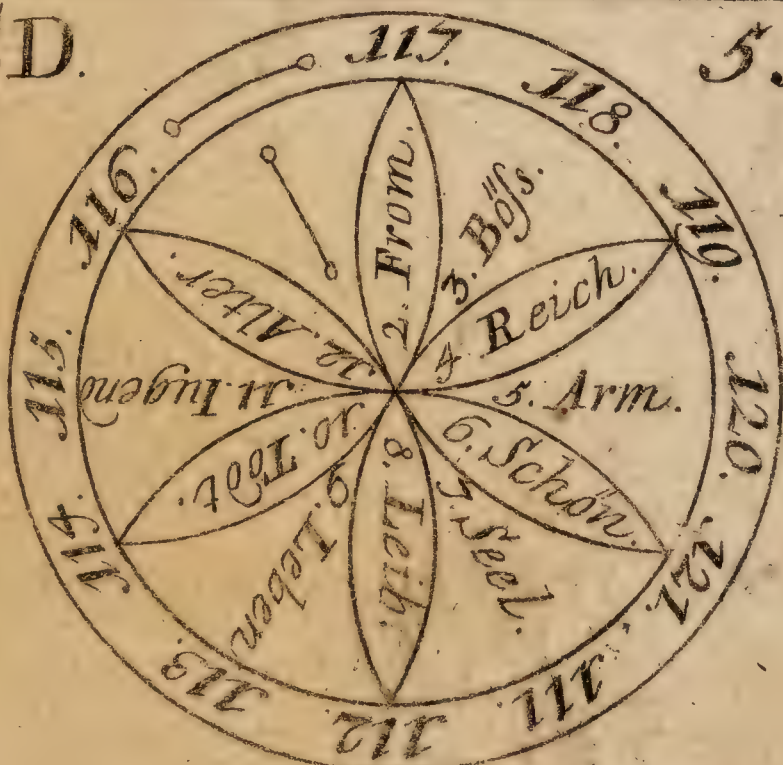 D.
5.
117.
118.
119.
120.
121.
111.
112.
113.
114.
115.
116.
2. From.
3. Böſs.
4 Reich.
5. Arm.
6. Schön.
7. Seel.
8. Leib.
9. Leben
10. Todt.
11. Iugend
12. Alter.